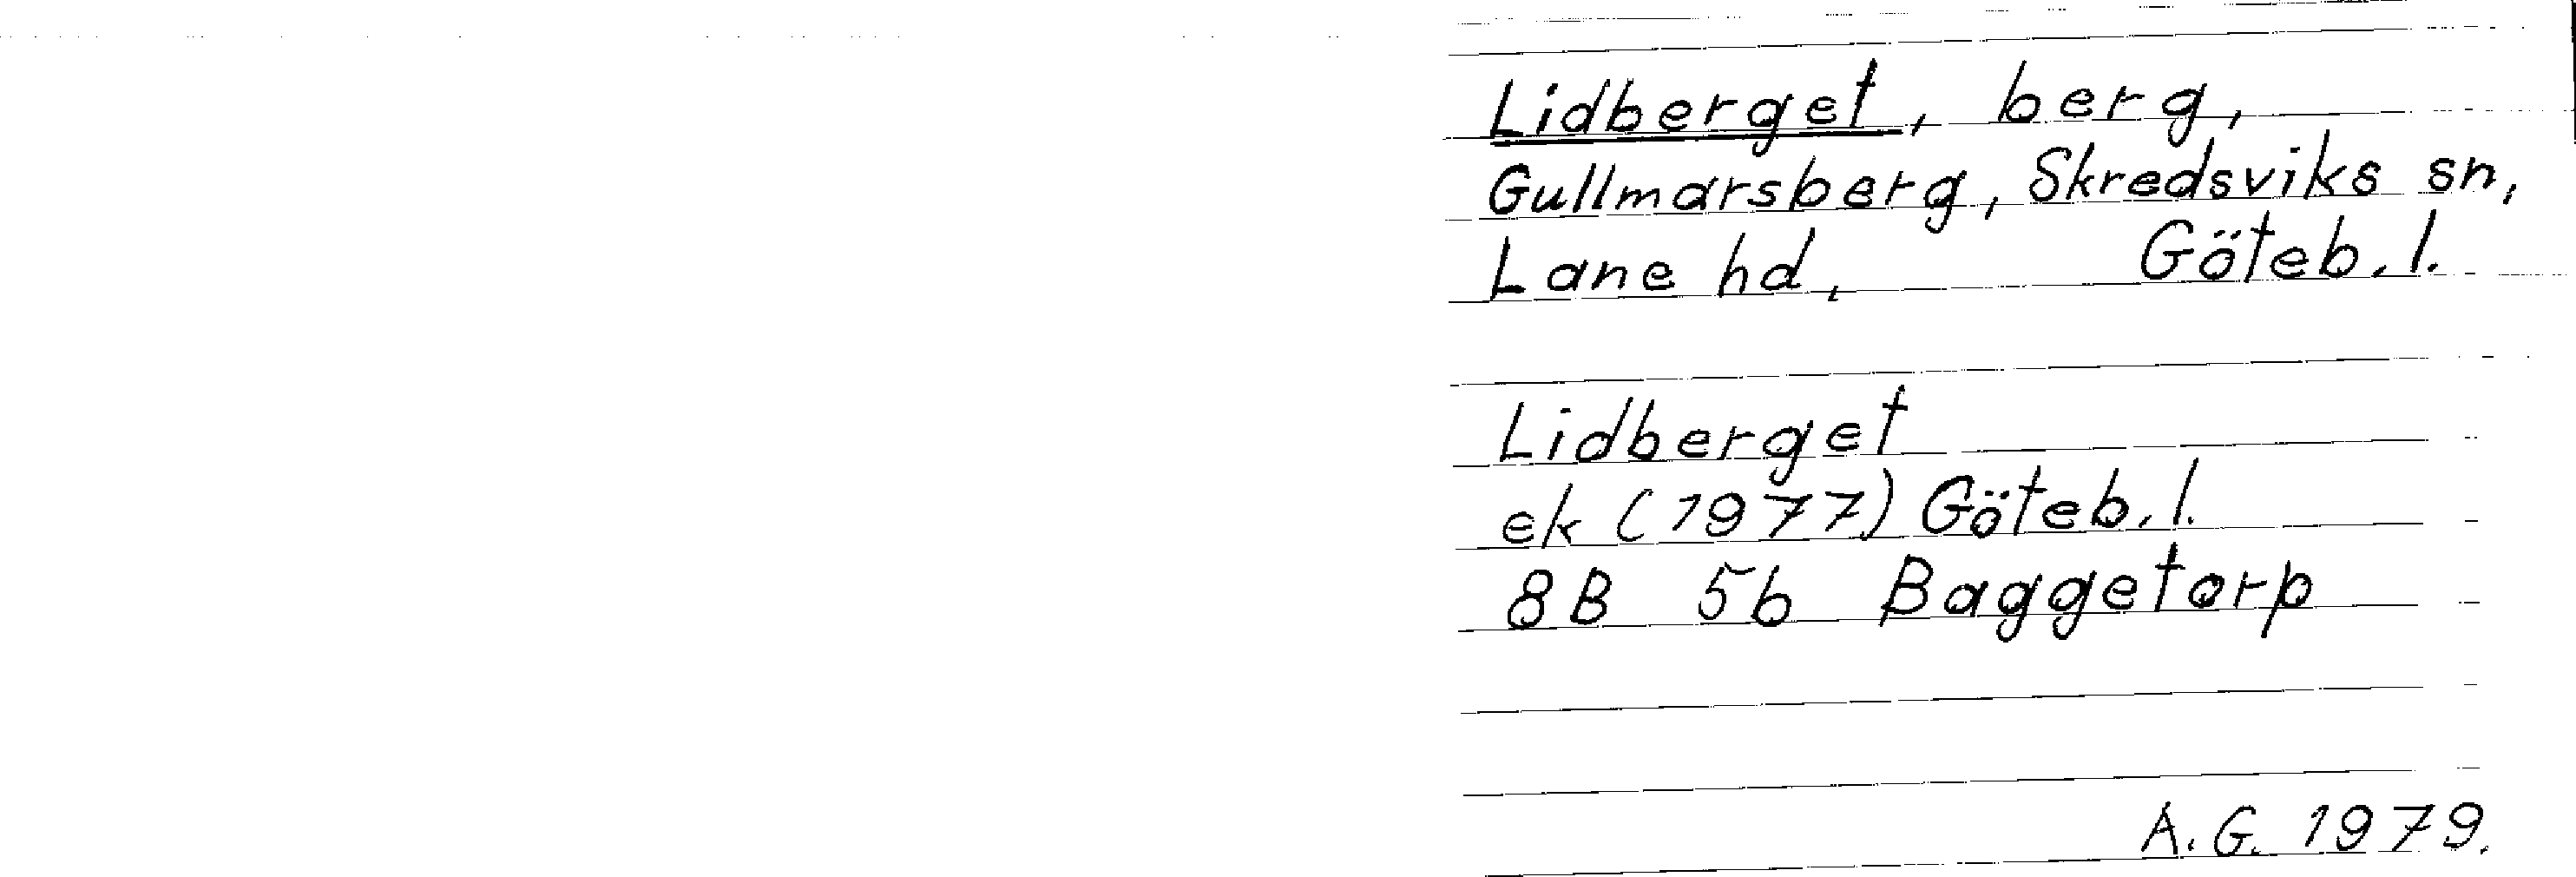 Lidberget, berg,
Gullmarsberg, Skredsviks sn,
Lane hd, Göteb. l.
Lidberget
ek (1977) Göteb. l.
8B 5b Baggetorp
A. G. 1979.